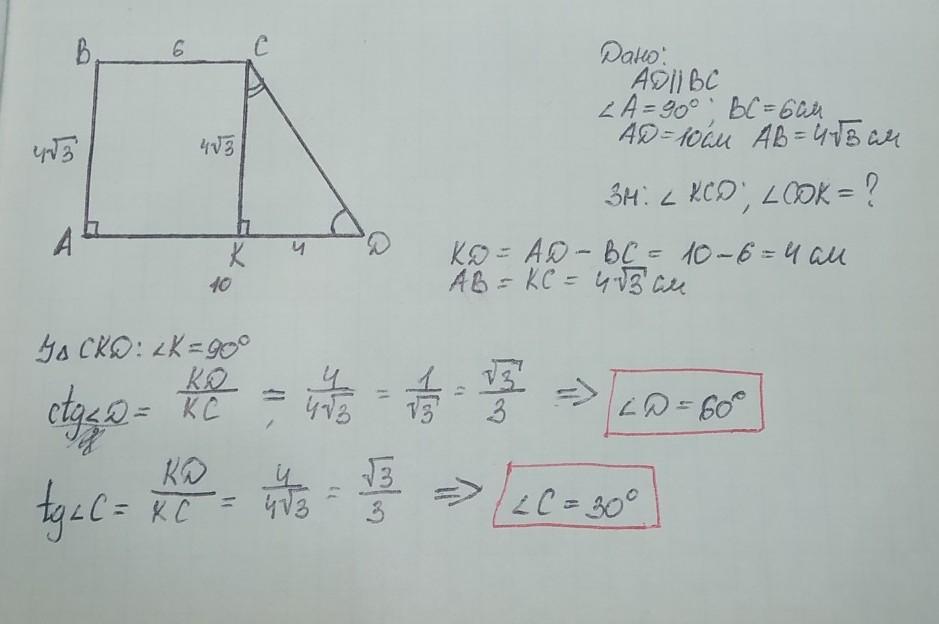 B 6 C
4√3 4√3
A K 4 D
10
Дано:
AD||BC
∠A=90°; BC=6см
AD=10см AB=4√3 см
Зн: ∠KCD; ∠CDK=?
KD = AD - BC = 10-6 = 4 см
AB = KC = 4√3 см
У△ CKD: ∠K=90°
ctg∠D = KD/KC = 4/4√3 = 1/√3 = √3/3 => ∠D = 60°
tg∠C = KD/KC = 4/4√3 = √3/3 => ∠C = 30°